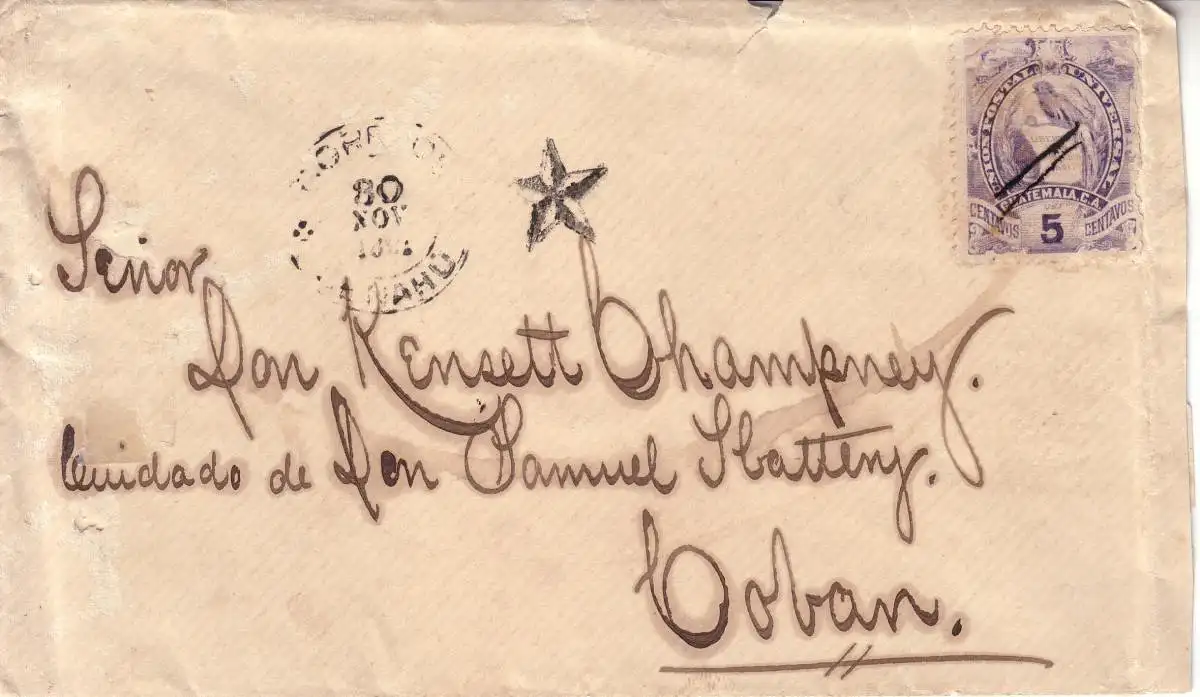 UNION POSTAL UNIVERSAL
GUATEMALA, C.A.
CENTAVOS 5 CENTAVOS
CORREOS
30
NOV
Señor
Don Kensett Champney.
Cuidado de Don Samuel
Coban.